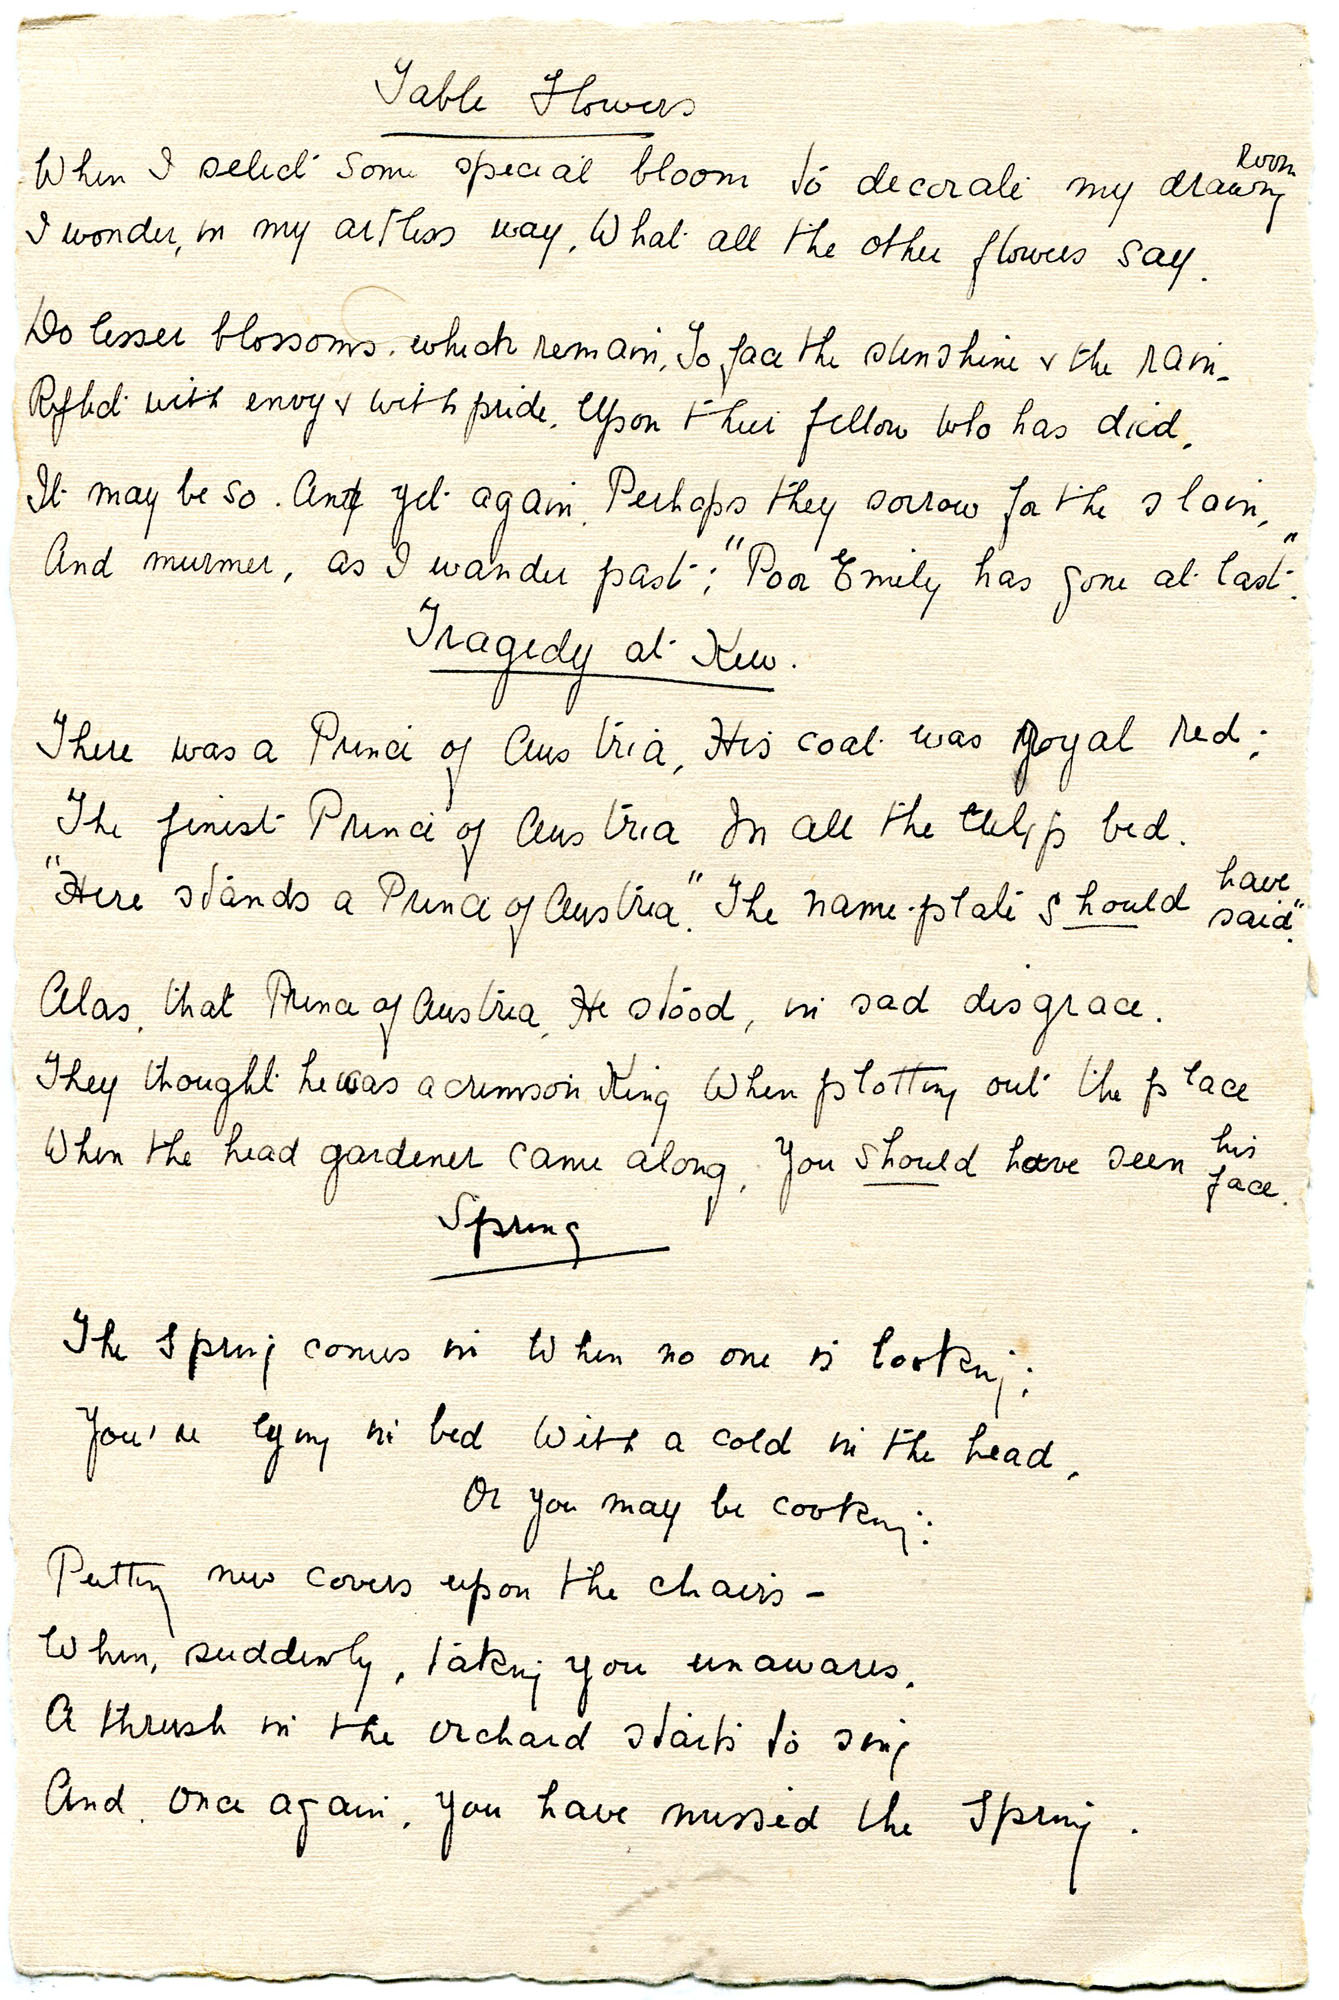 Table Flowers
When I select some special bloom to decorate my drawing Room
I wonder, in my artless way, What all the other flowers say.
Do lesser blossoms, which remain, To face the sunshine & the rain -
Reflect with envy & with pride, Upon their fellow who has died.
It may be so. And yet again, Perhaps they sorrow for the slain,
And murmer, as I wander past; "Poor Emily has gone at last".
Tragedy at Kew.
There was a Prince of Austria, His coat was royal red;
The finest Prince of Austria In all the tulip bed.
"Here stands a Prince of Austria". The name-plate should have said".
Alas, that Prince of Austria, He stood, in sad disgrace.
They thought he was a crimson King When plotting out the place
When the head gardener came along, You should have seen his face.
Spring
The Spring comes in When no one is looking;
You're lying in bed With a cold in the head,
Or you may be cooking:
Putting new covers upon the chairs -
When, suddenly, taking you unawares,
A thrush in the orchard starts to sing
And, once again, you have missed the Spring.